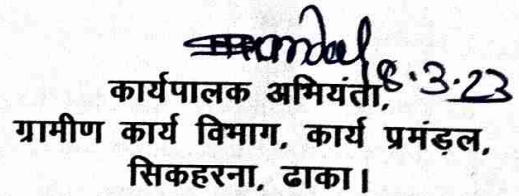 8.3.23
कार्यपालक अभियंता,
ग्रामीण कार्य विभाग, कार्य प्रमंड़ल,
सिकहरना, ढाका।